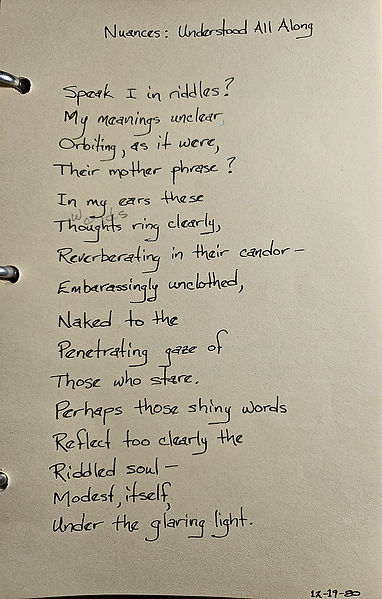 Nuances: Understood All Along
Speak I in riddles?
My meanings unclear,
Orbiting, as it were,
Their mother phrase?
In my ears these
words
Thoughts ring clearly,
Reverberating in their candor—
Embarassingly unclothed,
Naked to the
Penetrating gaze of
Those who stare.
Perhaps those shiny words
Reflect too clearly the
Riddled soul—
Modest, itself,
Under the glaring light.
12-19-80